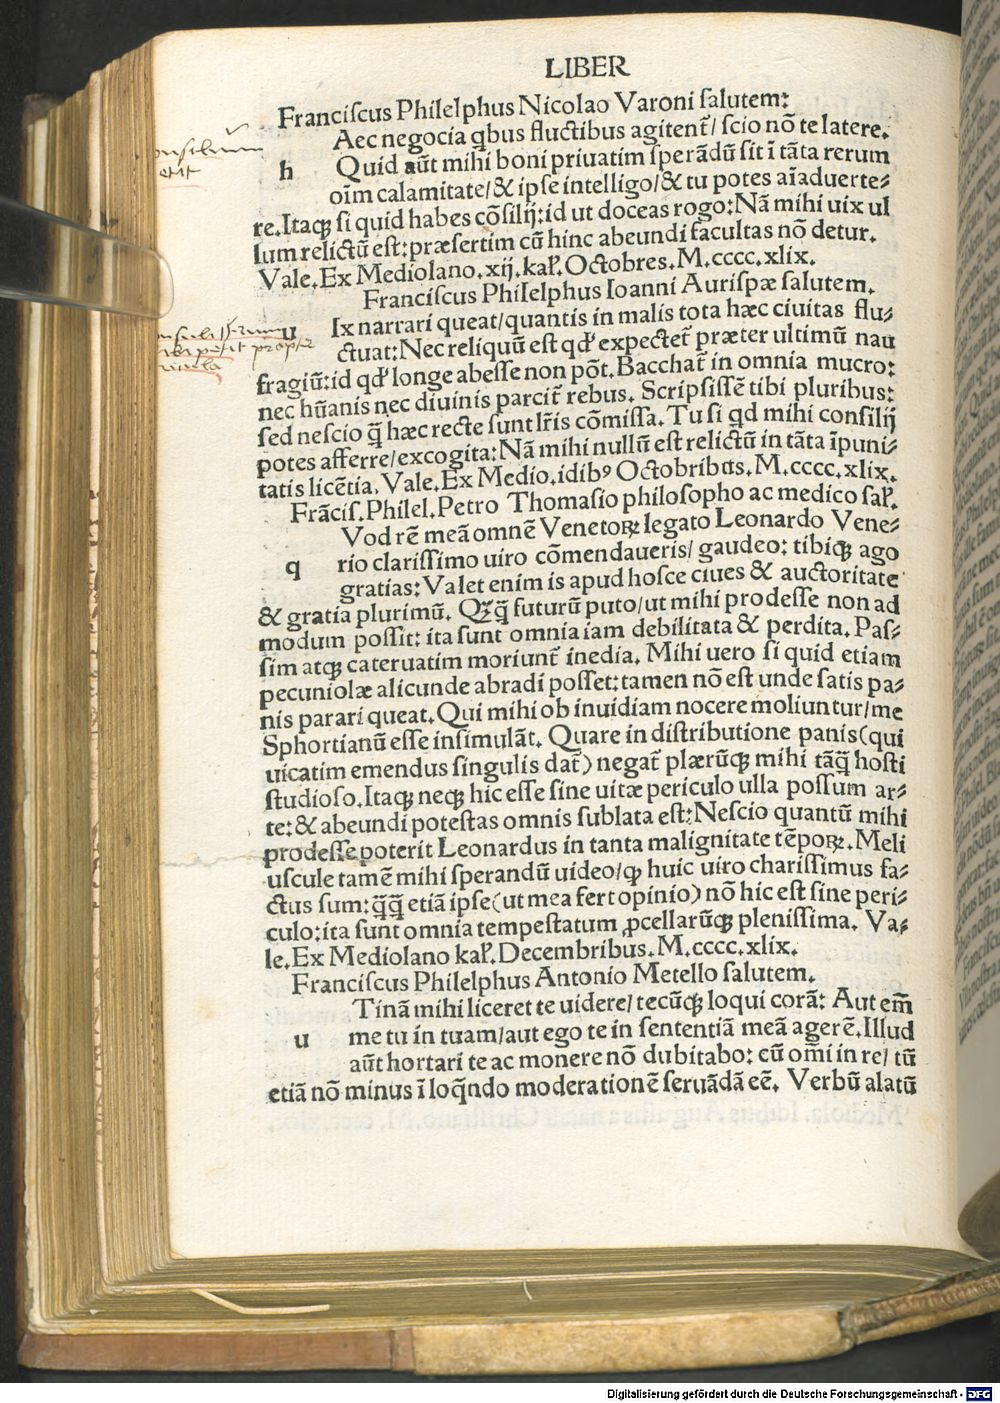 LIBER
Franciſcus Philelphus Nicolao Varoni ſalutem:
Aec negocia qbus fluctibus agitent̃/ ſcio nõ te latere.
h Quid aũt mihi boni priuatim ſperãdũ ſit ĩ tãta rerum
oĩm calamitate/& ipſe intelligo/& tu potes aĩaduerte⸗
re.Itaqꝫ ſi quid habes cõſilij:id ut doceas rogo:Nã mihi uix ul
lum relictũ eſt:præſertim cũ hinc abeundi facultas nõ detur.
Vale.Ex Mediolano.xij.kał.Octobres.M.cccc.xlix.
Franciſcus Philelphus Ioanni Auriſpæ ſalutem.
u Ix narrari queat/quantis in malis tota hæc ciuitas flu⸗
ctuat:Nec reliquũ eſt qď expectet̃ præter ultimũ nau
fragiũ:id qď longe abeſſe non põt.Bacchat̃ in omnia mucro:
nec hũanis nec diuinis parcit̃ rebus. Scripſiſſẽ tibi pluribus:
ſed neſcio q̃ hæc recte ſunt lr̃is cõmiſſa.Tu ſi qd mihi conſilij
potes afferre/excogita:Nã mihi nullũ eſt relictũ in tãta ĩpuni⸗
tatis licẽtia.Vale.Ex Medio.idibꝰ Octobribus.M.cccc.xlix.
Frãciſ.Philel.Petro Thomaſio philoſopho ac medico ſał.
Vod rẽ meã omnẽ Venetoꝝ legato Leonardo Vene⸗
q rio clariſſimo uiro cõmendaueris/ gaudeo: tibiqꝫ ago
gratias:Valet enim is apud hoſce ciues & auctoritate
& gratia plurimũ. Qꝫq̃ futurũ puto/ut mihi prodeſſe non ad
modum poſſit: ita ſunt omnia iam debilitata & perdita.Paſ⸗
ſim atqꝫ cateruatim moriunt̃ inedia. Mihi uero ſi quid etiam
pecuniolæ alicunde abradi poſſet:tamen nõ eſt unde ſatis pa⸗
nis parari queat.Qui mihi ob inuidiam nocere moliuntur/me
Sphortianũ eſſe inſimulãt. Quare in diſtributione panis(qui
uicatim emendus ſingulis dat̃) negat̃ plærũqꝫ mihi tãq̃ hoſti
ſtudioſo.Itaqꝫ neqꝫ hic eſſe ſine uitæ periculo ulla poſſum ar⸗
te:& abeundi poteſtas omnis ſublata eſt:Neſcio quantũ mihi
prodeſſe poterit Leonardus in tanta malignitate tẽpoꝝ.Meli
uſcule tamẽ mihi ſperandũ uideo/qꝫ huic uiro chariſſimus fa⸗
ctus ſum:q̃q̃ etiã ipſe(ut mea fert opinio) nõ hic eſt ſine peri⸗
culo:ita ſunt omnia tempeſtatum ꝓcellarũqꝫ pleniſſima. Va⸗
le.Ex Mediolano kał.Decembribus.M.cccc.xlix.
Franciſcus Philelphus Antonio Metello ſalutem.
Tinã mihi liceret te uidere/ tecũqꝫ loqui corã: Aut em̃
u me tu in tuam/aut ego te in ſententiã meã agerẽ.Illud
aũt hortari te ac monere nõ dubitabo: cũ om̃i in re/ tũ
etiã nõ minus ĩ loq̃ndo moderationẽ ſeruãdã eẽ. Verbũ alatũ
Digitalisierung gefördert durch die Deutsche Forschungsgemeinschaft - DFG